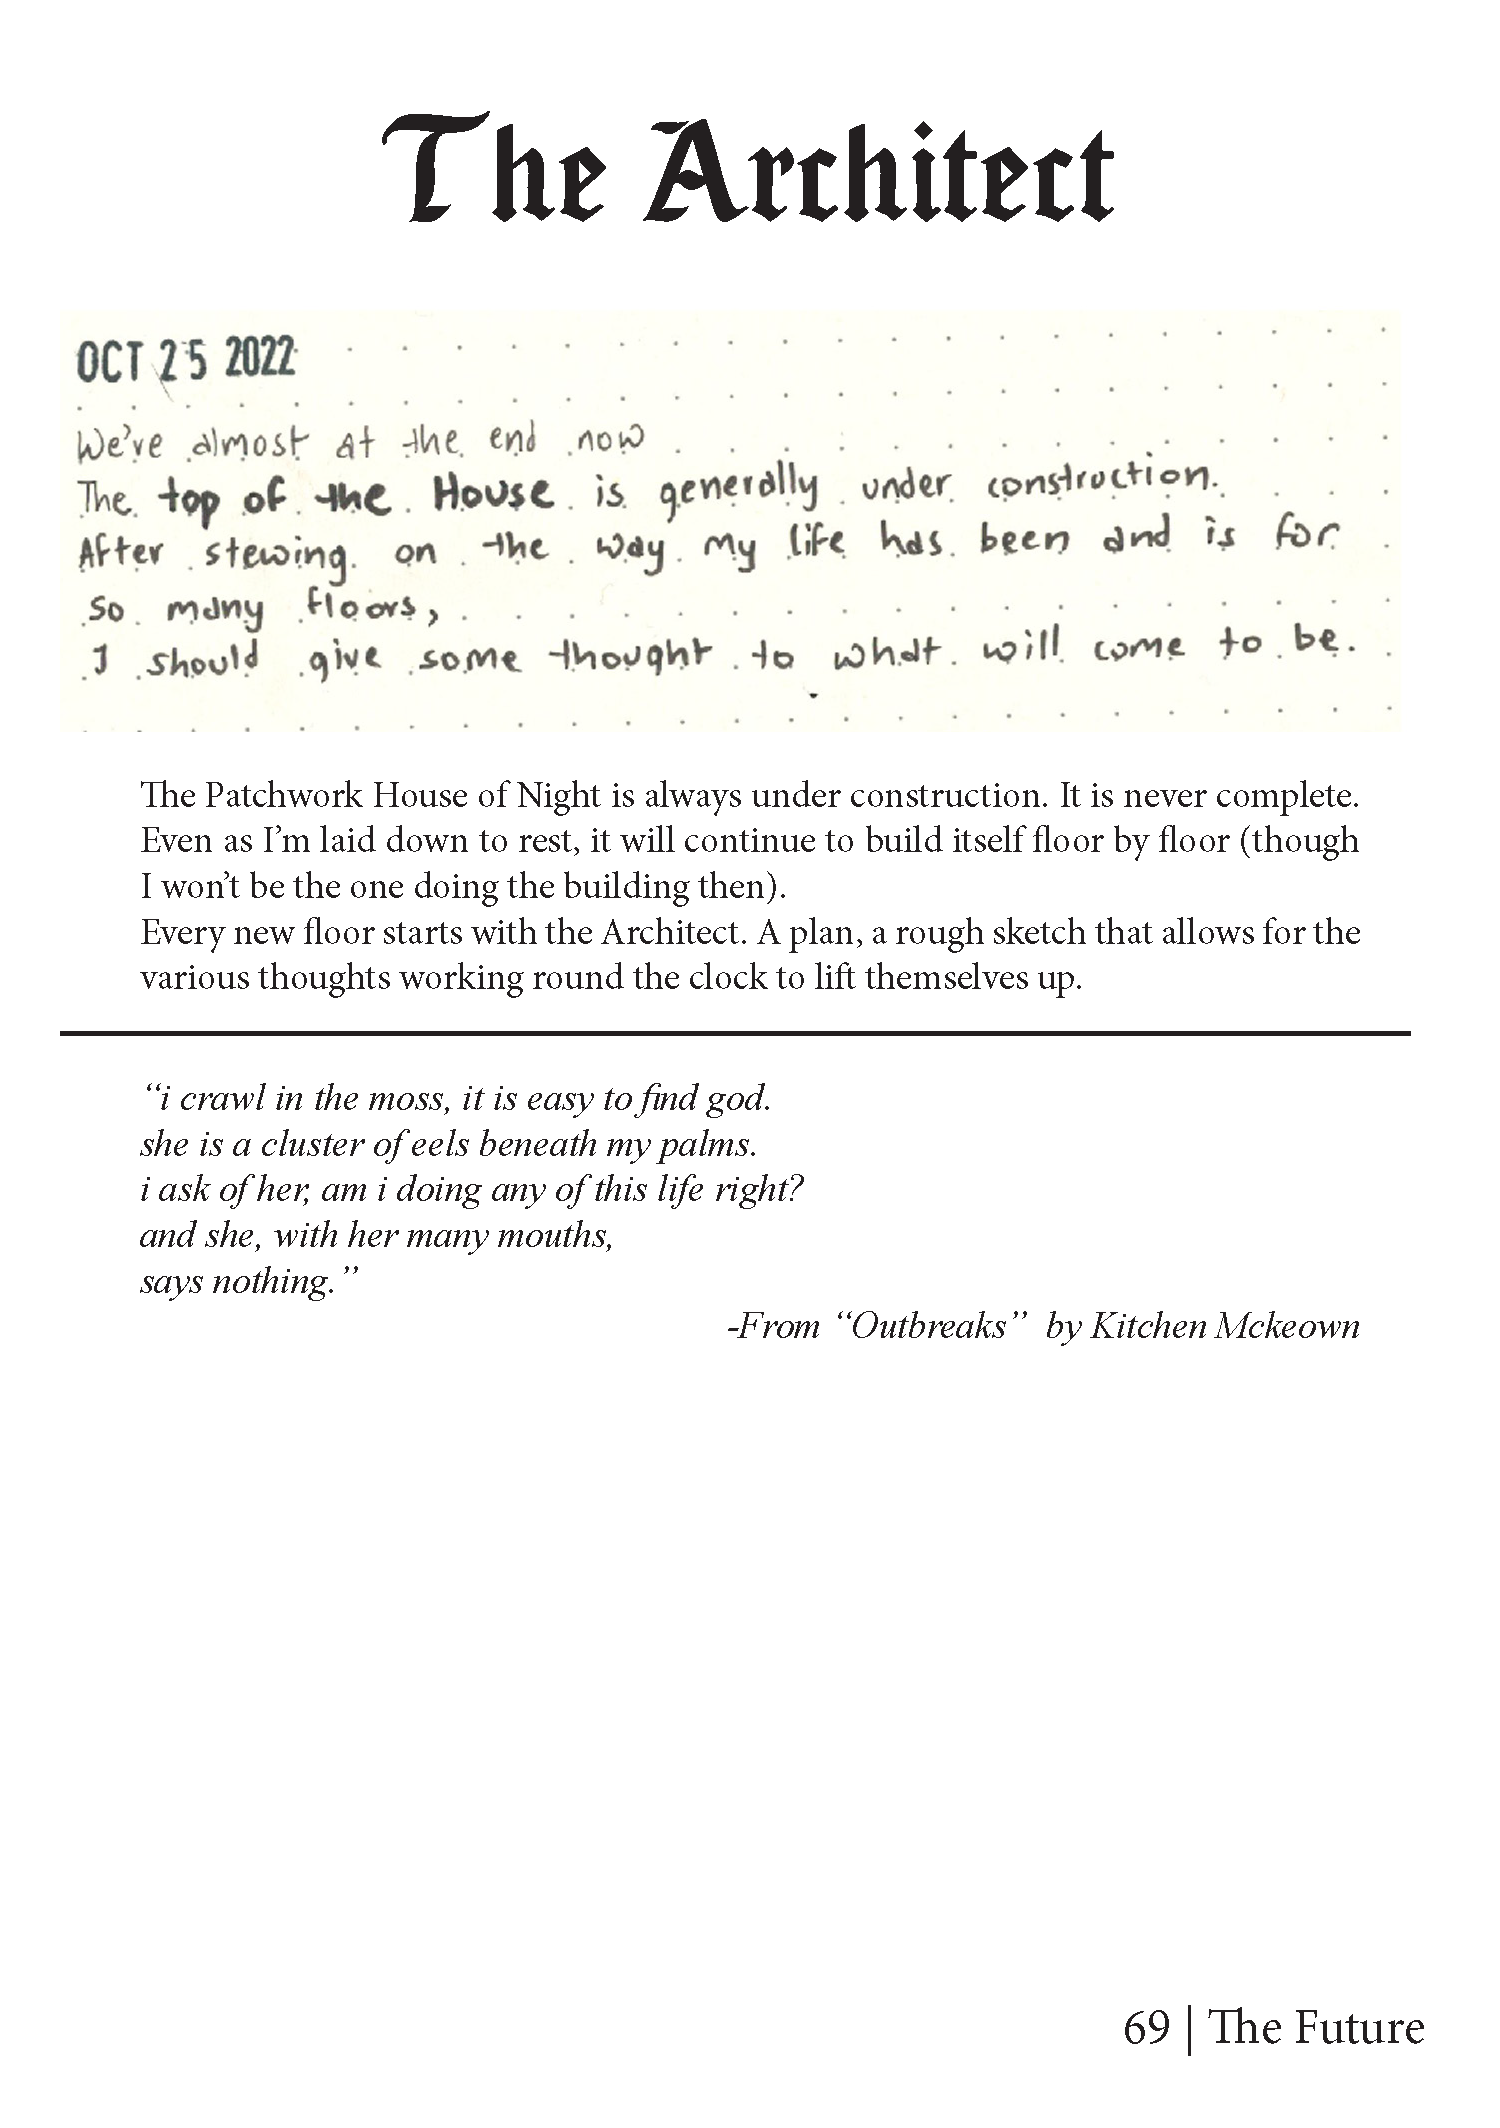 The Architect
OCT 25 2022
We've almost at the end now
The top of the House is generally under construction.
After stewing on the way my life has been and is for
so many floors,
I should give some thought to what will come to be.
The Patchwork House of Night is always under construction. It is never complete.
Even as I’m laid down to rest, it will continue to build itself floor by floor (though
I won’t be the one doing the building then).
Every new floor starts with the Architect. A plan, a rough sketch that allows for the
various thoughts working round the clock to lift themselves up.
“i crawl in the moss, it is easy to find god.
she is a cluster of eels beneath my palms.
i ask of her, am i doing any of this life right?
and she, with her many mouths,
says nothing.”
-From “Outbreaks” by Kitchen Mckeown
69 | The Future